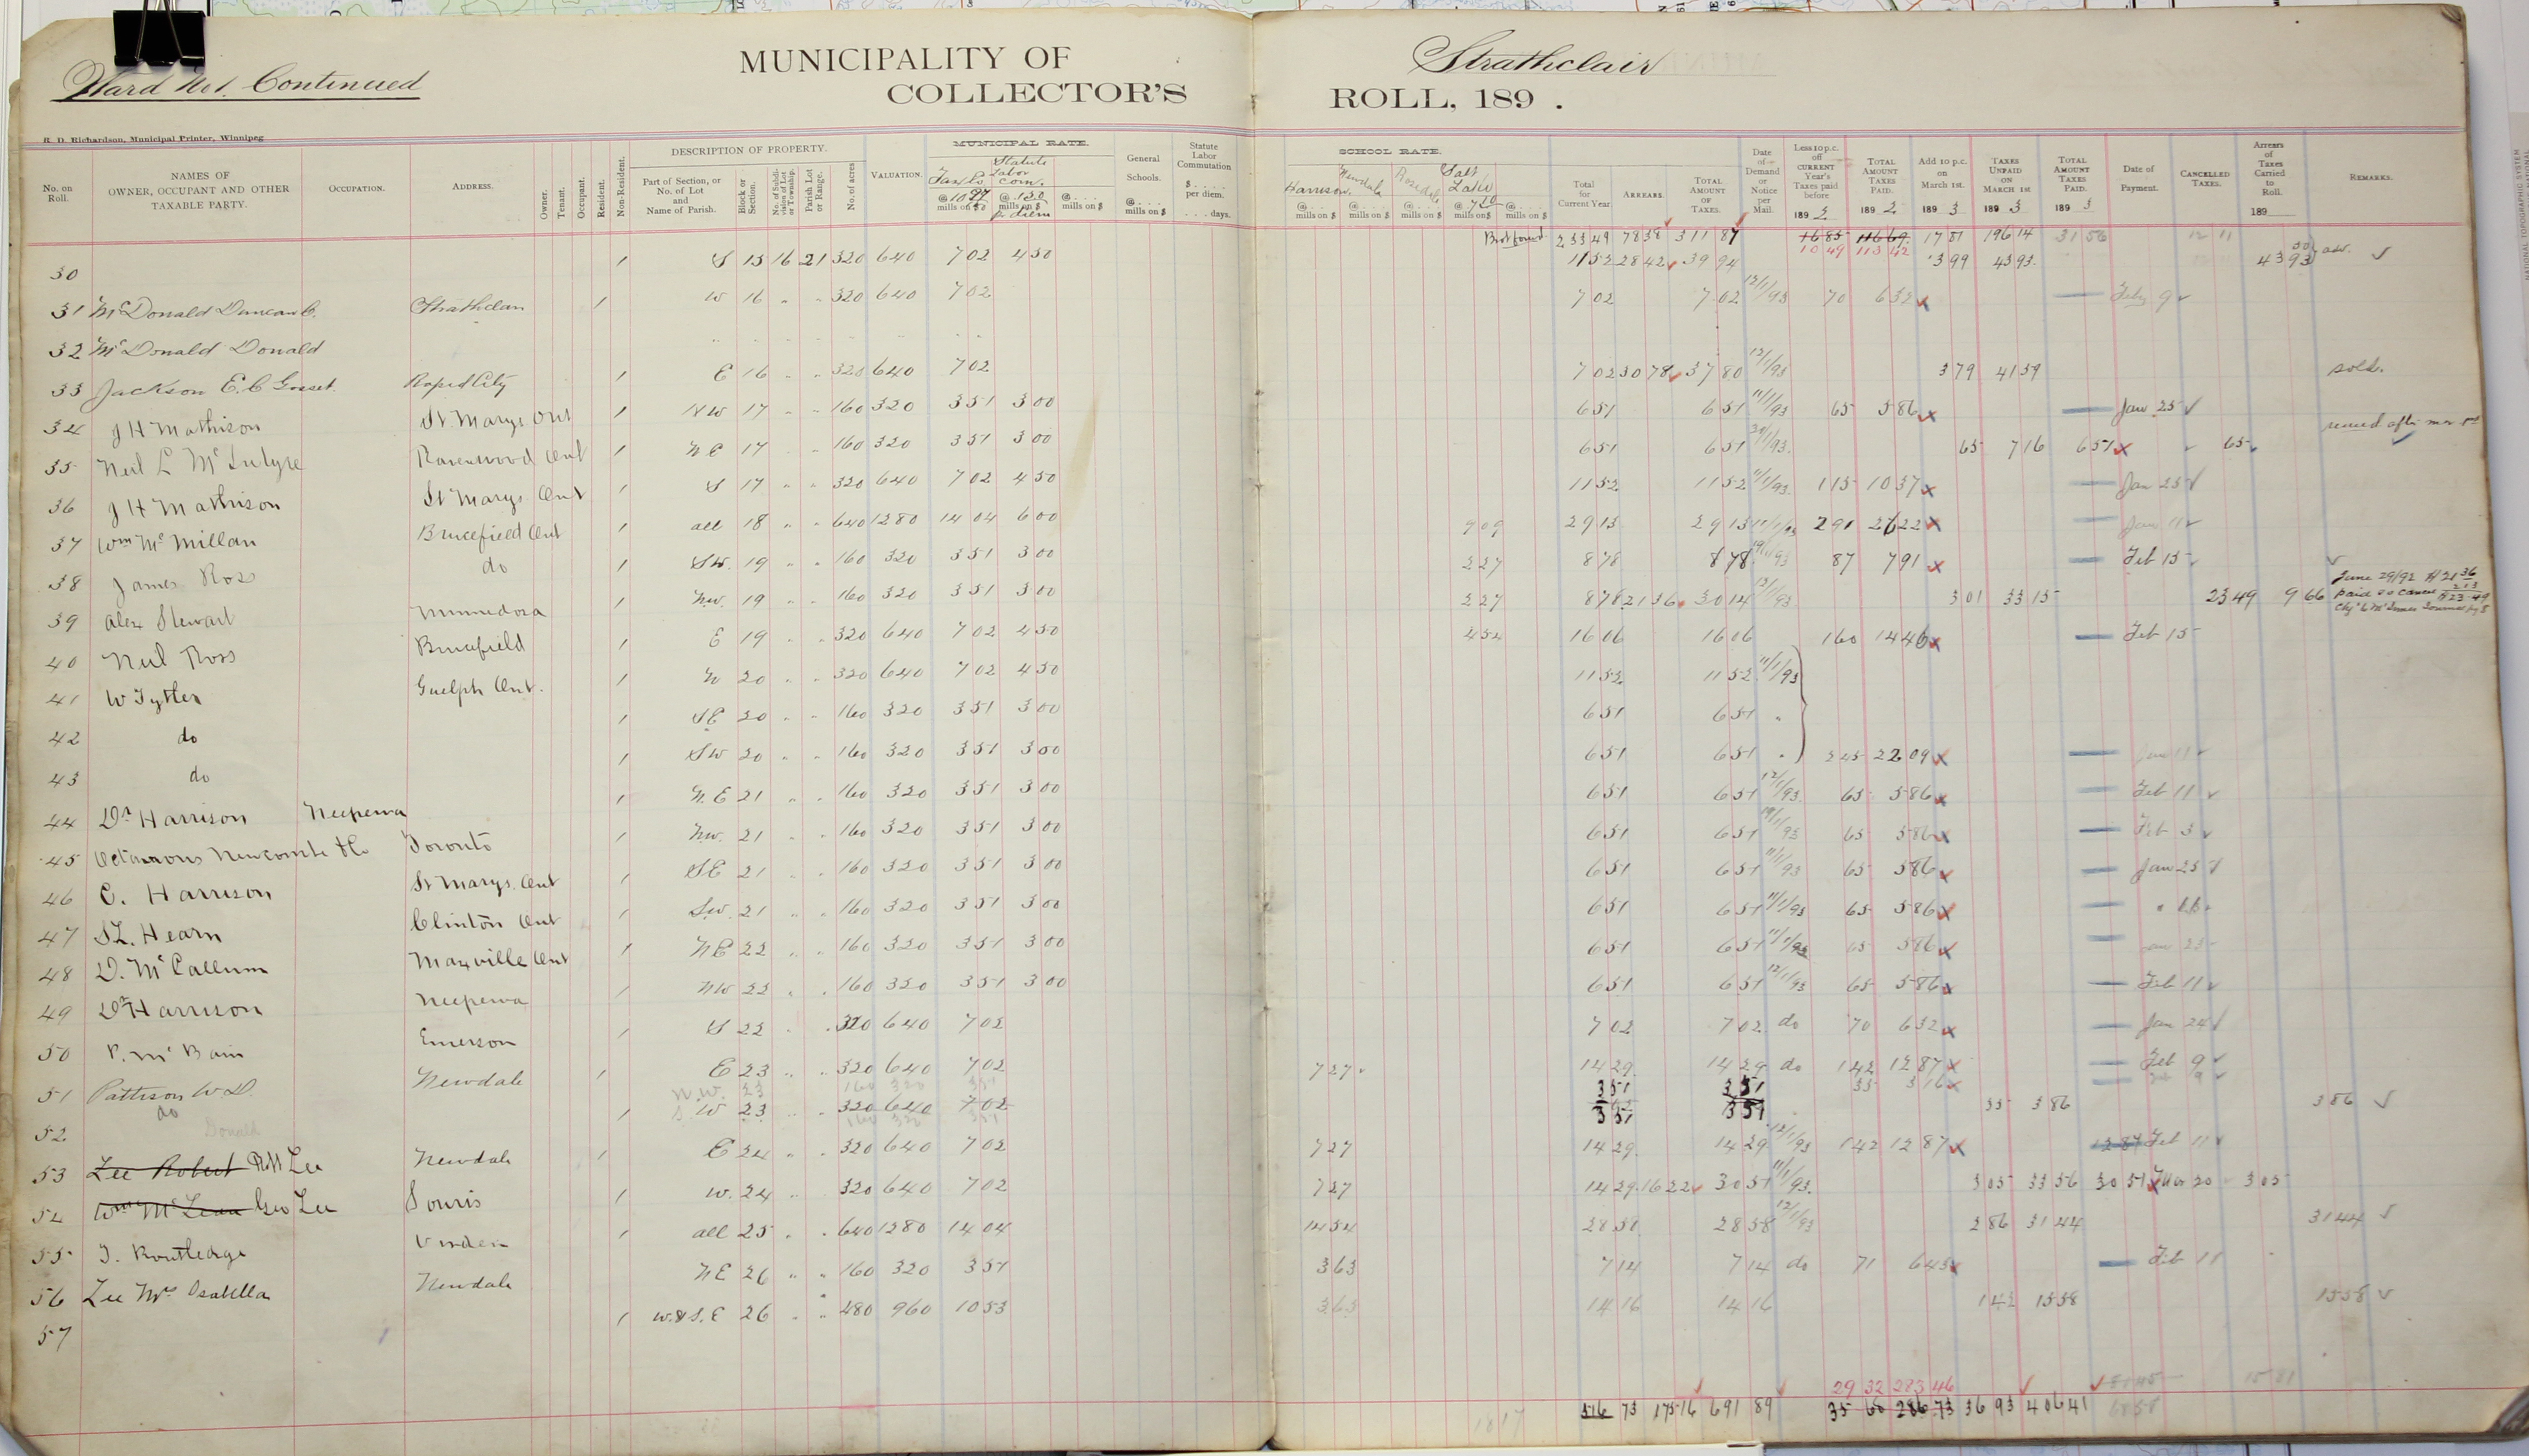 Ward No 1. Continued
MUNICIPALITY OF Strathclair
COLLECTOR'S ROLL, 189 .
R. D. Richardson, Municipal Printer, Winnipeg
No. on Roll.
NAMES OF OWNER, OCCUPANT AND OTHER TAXABLE PARTY.
OCCUPATION.
ADDRESS.
Owner.
Tenant.
Occupant.
Resident.
Non-Resident.
DESCRIPTION OF PROPERTY.
Part of Section, or No. of Lot and Name of Parish.
Block or Section.
No. of Subdivision of Lot or Township.
Parish Lot or Range.
No. of acres
VALUATION.
MUNICIPAL RATE.
Statute Labor Com.
mills on $
General Schools.
@ . . . mills on $
Statute Labor Commutation
$ . . . . per diem.
. . . . days.
SCHOOL RATE.
Harrison. Newdale Rosedale Salt Lake
mills on $ mills on $ mills on $ mills on $ mills on $
Total for Current Year
ARREARS.
TOTAL AMOUNT OF TAXES.
Date of Demand or Notice per Mail.
Less 10 p.c. off CURRENT Year's Taxes paid before 189 3
TOTAL AMOUNT TAXES PAID. 189 2
Add 10 p.c. on March 1st. 189 3
TAXES UNPAID ON MARCH 1st 189 3
TOTAL AMOUNT TAXES PAID. 189 3
Date of Payment.
CANCELLED TAXES.
Arrears of Taxes Carried to Roll. 189
REMARKS.
Brot forward 233 49 78 38 311 87 16 85 116 69 17 81 196 14 31 56 12 11
10 49 113 42
30 S 15 16 21 320 640 7 02 4 50 11 52 28 42 39 94 3 99 43 93 43 93
31 McDonald Duncan C. Strathclair W 16 " " 320 640 7 02 7 02 7 02 12/1/93 70 6 32 Feby 9
32 McDonald Donald
33 Jackson E. C Gosset. Rapid City E 16 " " 320 640 7 02 7 02 30 78 37 80 12/1/93 3 79 41 59 sold.
34 J H Mathison St. Marys Ont NW 17 " " 160 320 3 51 3 00 6 51 6 51 11/1/93 65 5 86 Jan 25
35 Neil L McIntyre Ravenwood Ont N E 17 160 320 3 51 3 00 6 51 6 51 65 7 16 6 51 65
36 J H Mathison St Marys Ont S 17 " " 320 640 7 02 4 50 11 52 11 52 11/1/93 1 15 10 37 Jan 25
37 Wm McMillan Brucefield Ont all 18 " " 640 1280 14 04 6 00 9 09 29 13 29 13 11/1/93 2 91 26 22 Jan 11
38 James Ross do SW. 19 " " 160 320 3 51 3 00 2 27 8 78 8 78 87 7 91 Feb 15
39 Alex Stewart Minnedosa N.W. 19 " " 160 320 3 51 3 00 2 27 8 78 21 36 30 14 12/1/93 3 01 33 15 23 49 9 66 June 29/92
40 Neil Ross Brucefield E 19 " " 320 640 7 02 4 50 4 54 16 06 16 06 1 60 14 46 Feb 15
41 W Tytler Guelph Ont. N 20 " " 320 640 7 02 4 50 11 52 11 52 11/1/93
42 do SE 20 " " 160 320 3 51 3 00 6 51 6 51 "
43 do SW 20 " " 160 320 3 51 3 00 6 51 6 51 " 2 45 22 09 Jan 11
44 Dr Harrison Neepewa N. E 21 " " 160 320 3 51 3 00 6 51 6 51 12/1/93 65 5 86 Feb 11
45 Newcombe &Co Toronto N.W. 21 " " 160 320 3 51 3 00 6 51 6 51 65 5 86 Feb 3
46 C. Harrison St Marys. Ont SE 21 " " 160 320 3 51 3 00 6 51 6 51 11/1/93 65 5 86 Jan 25
47 Hearn Clinton Ont S.W. 21 " " 160 320 3 51 3 00 6 51 6 51 11/1/93 65 5 86
48 D. McCallum Maxville Ont N E 22 " " 160 320 3 51 3 00 6 51 6 51 11/1/93 65 5 86 Jan 25
49 Dr Harrison Neepewa NW 22 " " 160 320 3 51 3 00 6 51 6 51 12/1/93 65 5 86 Feb 11
50 P. McBain Emerson S 22 " " 320 640 7 02 7 02 7 02 do 70 6 32 Jan 24
51 Pattison W. D. Newdale E 23 " " 320 640 7 02 7 27 14 29 14 29 do 1 42 12 87 Feb 9
do N.W. 23 160 320 3 51 3 51 3 51 35 3 16
52 S. W 23 " " 320 640 7 02 3 51 3 51 35 3 86 3 86
160 320 3 51
Donald
53 Lee Robert Robt Lee Newdale E 24 " " 320 640 7 02 7 27 14 29 14 29 12/1/93 1 42 12 87 12 87 Feb 11
54 Wm McLean Geo Lee Souris W. 24 320 640 7 02 7 27 14 29 16 22 30 51 11/1/93 3 05 33 56 30 51 Mar 20 3 05
55 J. Routledge Virden all 25 " " 640 1280 14 04 14 54 28 58 28 58 12/1/93 2 86 31 44 31 44
56 Lee Mrs Isabella Newdale N E 26 " " 160 320 3 51 3 63 7 14 7 14 do 71 6 43 Feb 11
57 W.& S. E 26 " " 480 960 10 53 3 63 14 16 14 16 1 42 15 58 15 58
29 32 283 46 15 81
516 73 175 16 691 89 35 68 286 73 36 93 406 41